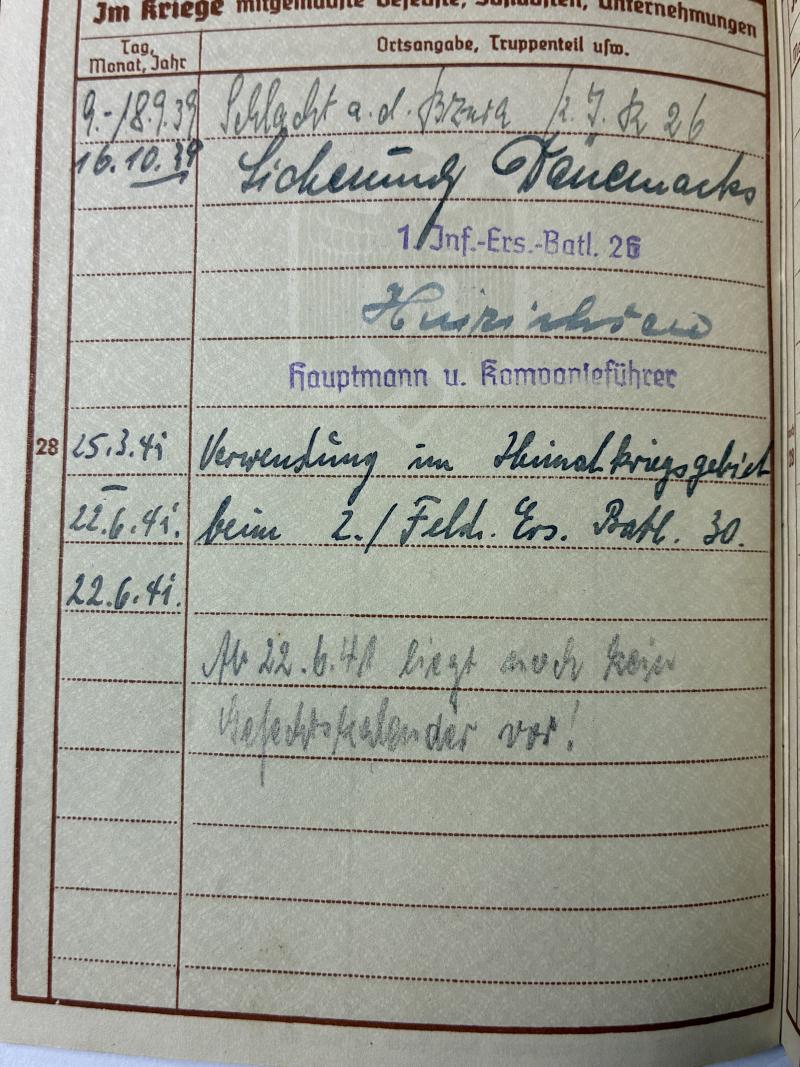 Im Kriege mitgemachte Gefechte, Schlachten, Unternehmungen
Tag, Monat, Jahr
Ortsangabe, Truppenteil usw.
9.-18.9.39 Schlacht a. d. Bzura /. I. R 26
16.10.39 Sicherung Dänemarks
1. Inf.-Ers.-Batl. 26
Hauptmann u. Kompanieführer
28
25.3.41 Verwendung im Heimatkriegsgebiet
–
22.6.41. beim 2./ Feld. Ers. Batl. 30.
22.6.41.
Ab 22.6.41 liegt noch kein
Gefechtskalender vor!